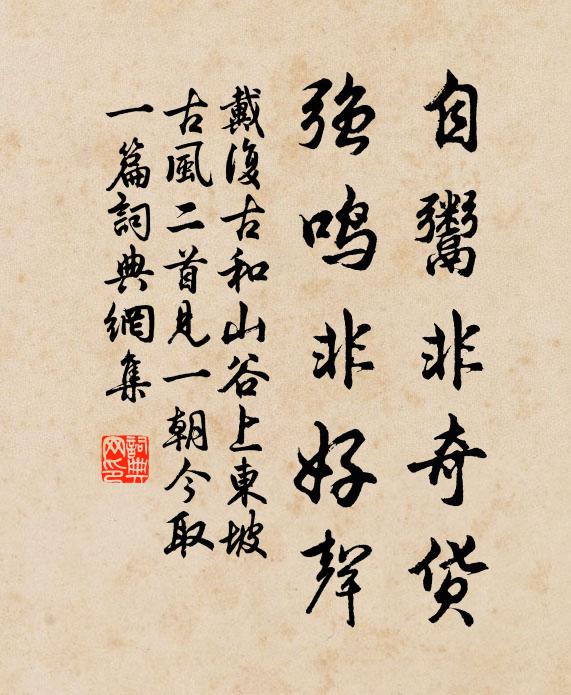 自鬻非奇货
强鸣非好聲
戴復古和山谷上東坡
古風二首見一朝今取
一篇詞典網集
詞典
网印